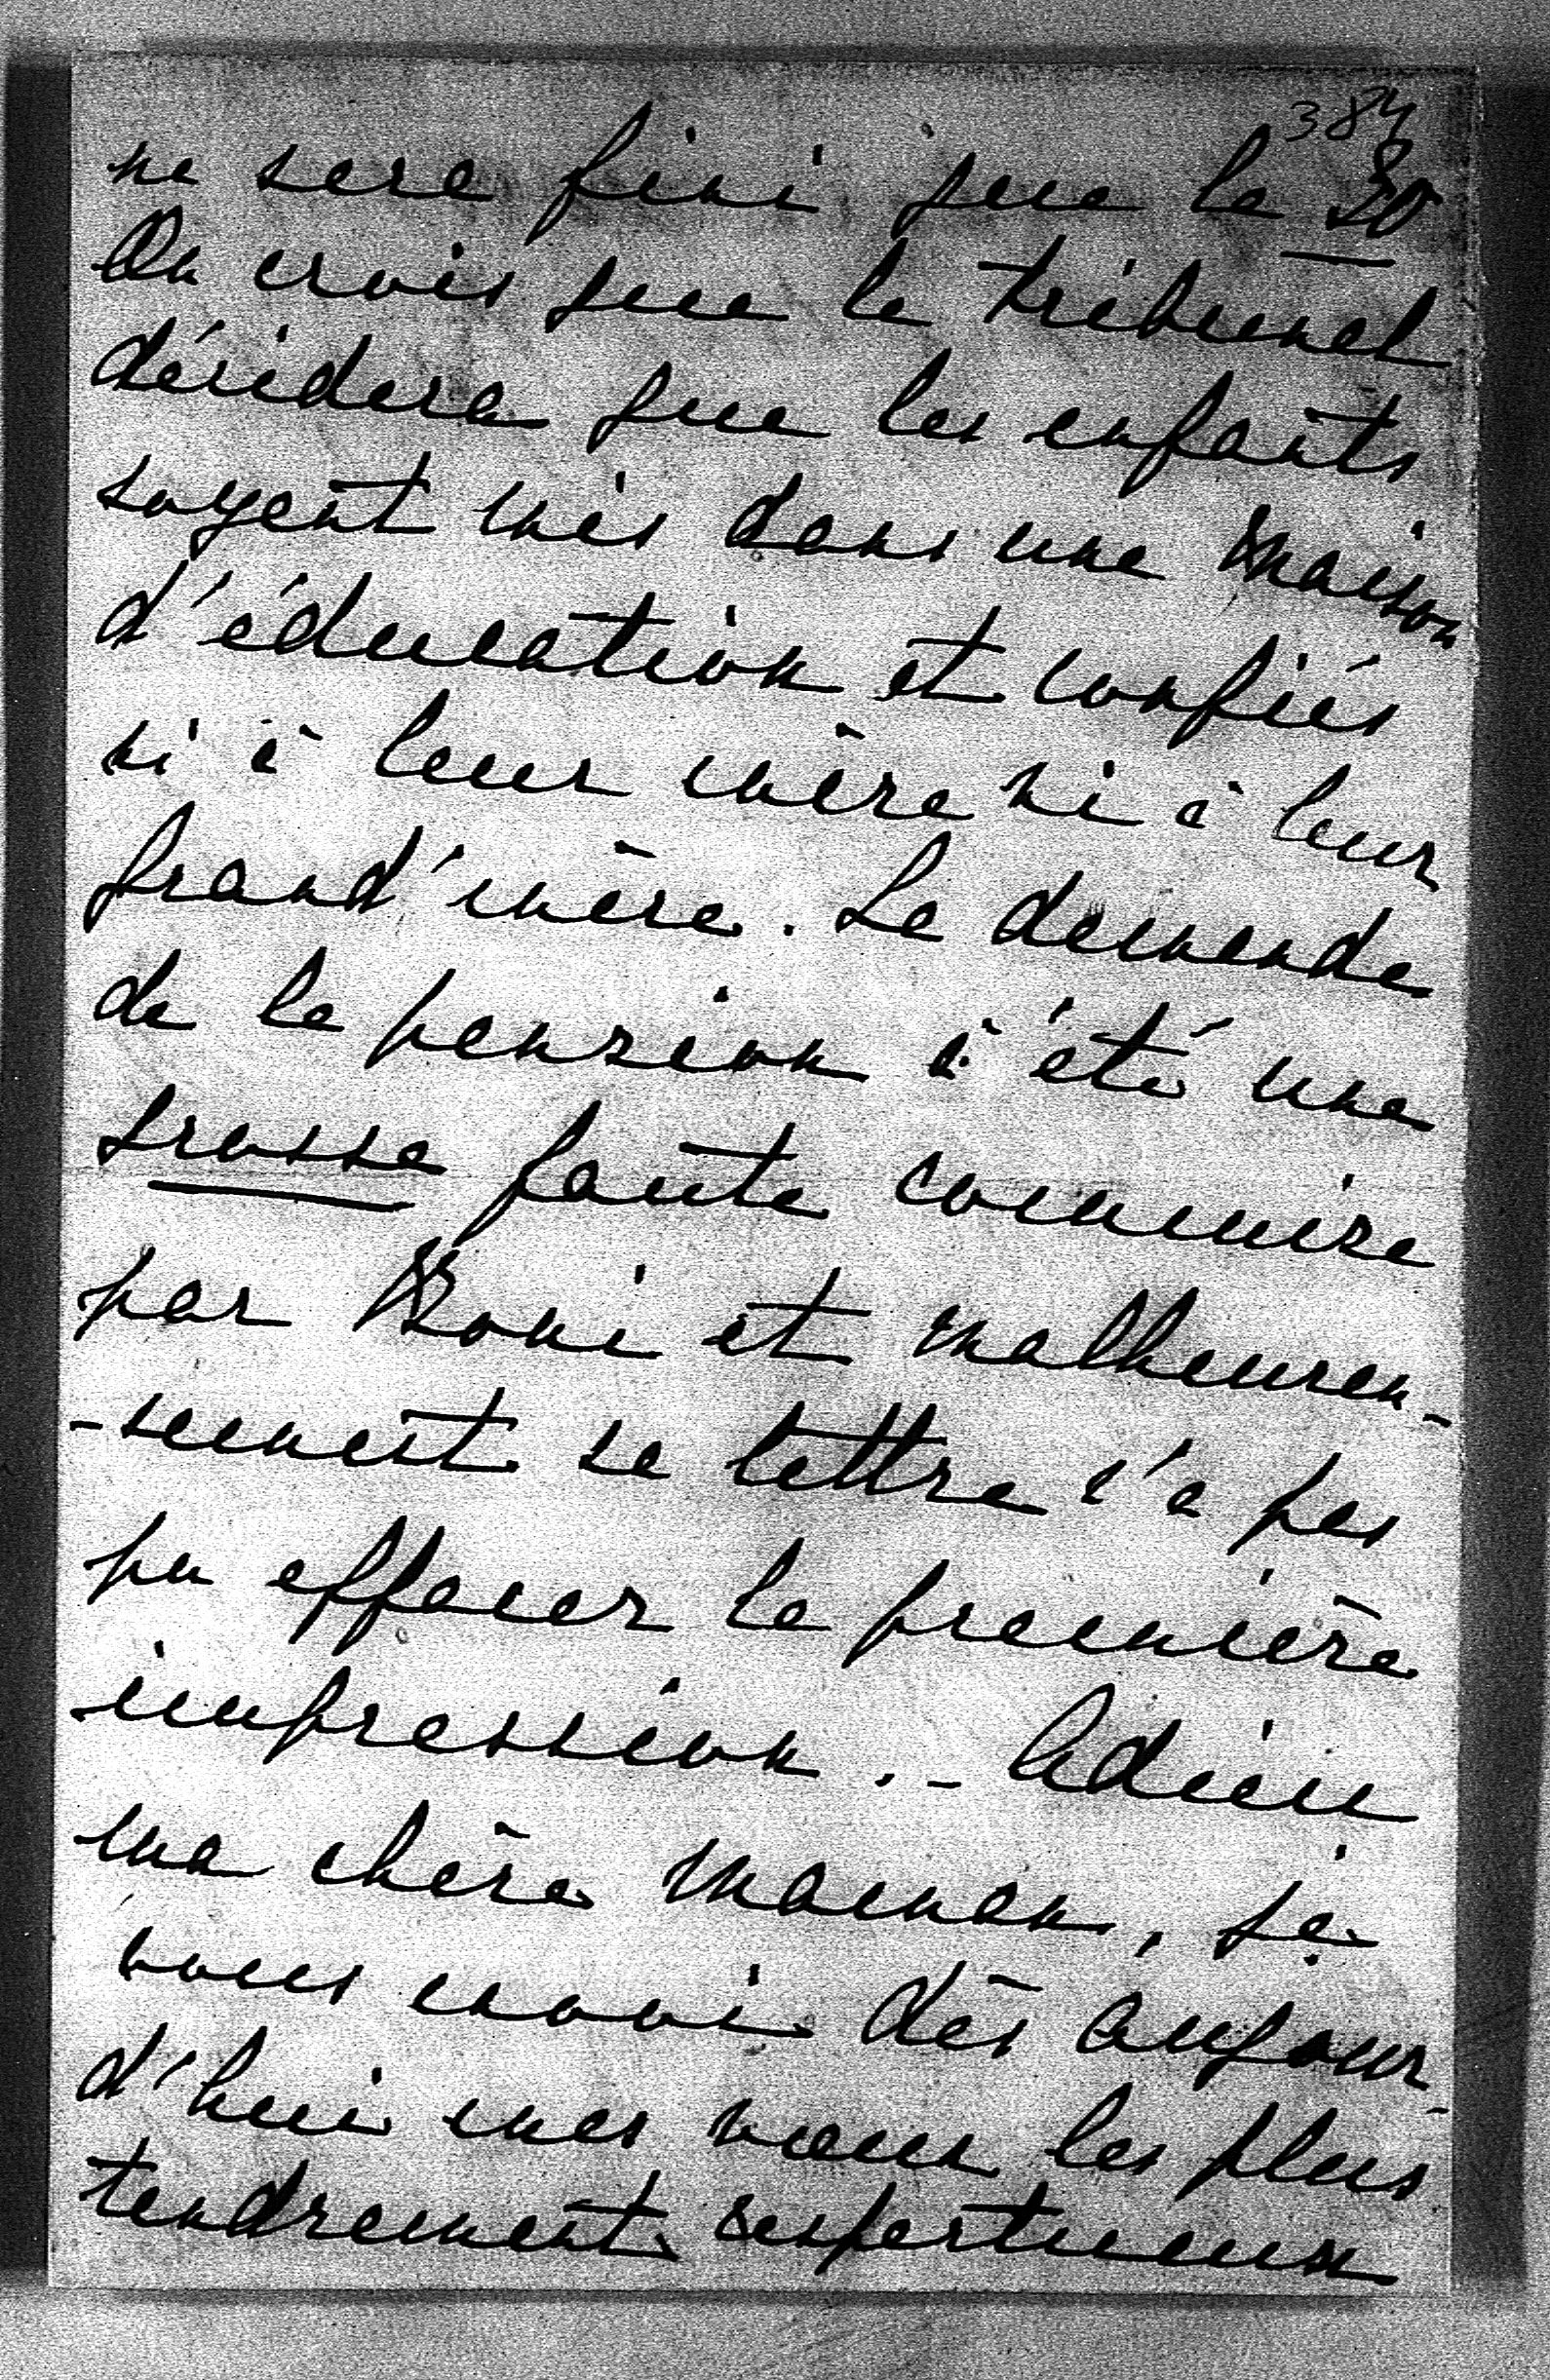 384
ne sera fini que le 20
On crois que le tribunal
décidera que les enfants
soyent mis dans une maison
d'éducation et confiés
ni à leur mère ni à leur
grand'mère. La demande
de la pension à été une
grosse faute commise
par Boni et malheureu-
-sement sa lettre n'a pas
pu effacer la première
impression. - Adieu
ma chère maman, je
vous envoi dès aujour-
d'hui mes vœux les plus
tendrement respectueux